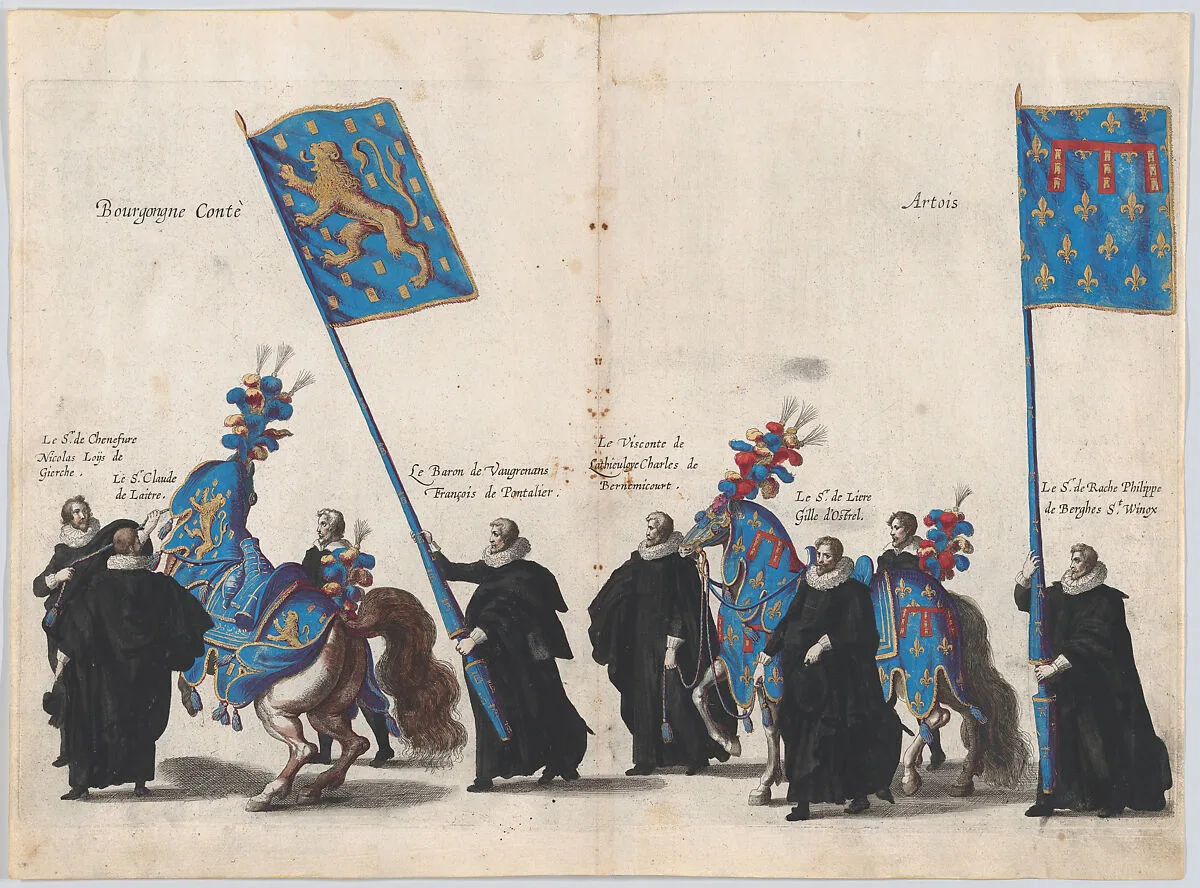 Bourgongne Contè
Artois
Le Sr. de Chenefure
Nicolas Loÿs de
Gierche.
Le Sr. Claude
de Laitre.
Le Baron de Vaugrenans
François de Pontalier.
Le Visconte de
Lathieuloye Charles de
Bernemicourt.
Le Sr. de Liere
Gille d'Ostrel.
Le Sr. de Rache Philippe
de Berghes St. Winox